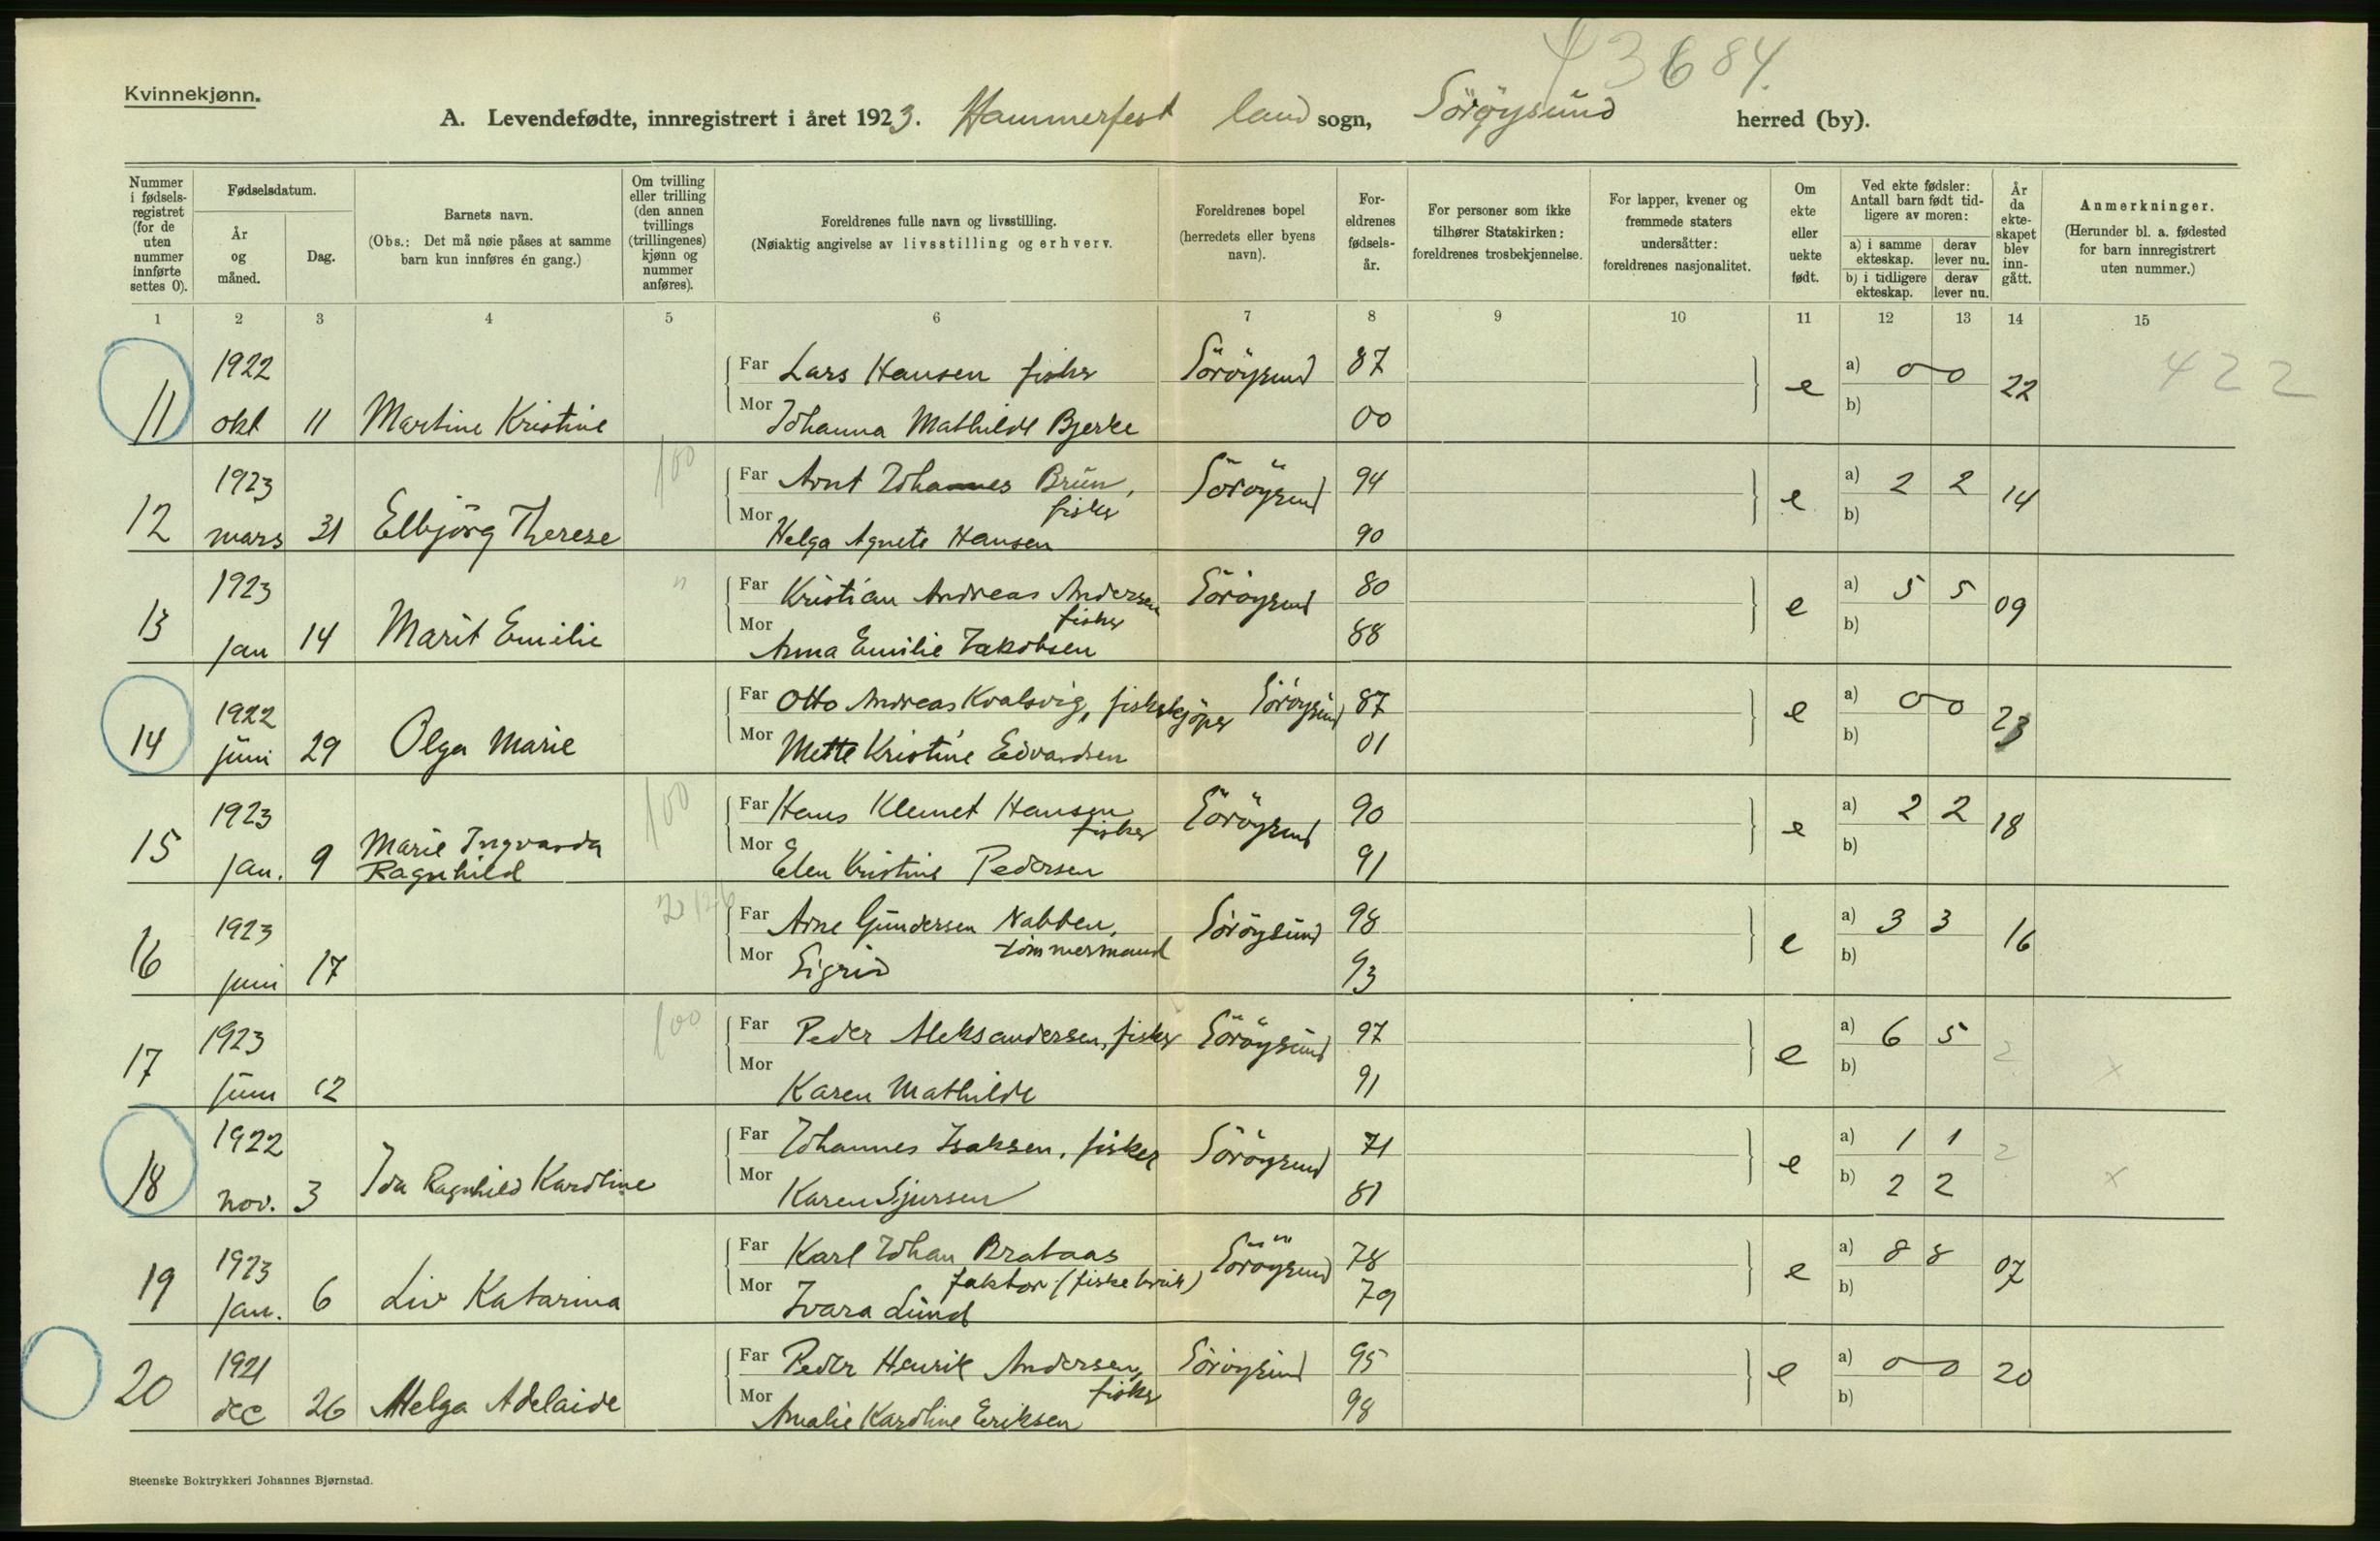 43684.
Kvinnekjønn.
A. Levendefødte, innregistrert i året 1923. Hammerfest land sogn, Söröysund herred (by).
Nummer i fødsels-registret (for de uten nummer innførte settes 0).
Fødselsdatum.
År og måned.
Dag.
Barnets navn.
(Obs.: Det må nøie påses at samme barn kun innføres én gang.)
Om tvilling eller trilling (den annen tvillings (trillingenes) kjønn og nummer anføres).
Foreldrenes fulle navn og livsstilling.
(Nøiaktig angivelse av livsstilling og erhverv.
Foreldrenes bopel (herredets eller byens navn).
For-eldrenes fødsels-år.
For personer som ikke tilhører Statskirken: foreldrenes trosbekjennelse.
For lapper, kvener og fremmede staters undersåtter: foreldrenes nasjonalitet.
Om ekte eller uekte født.
Ved ekte fødsler: Antall barn født tid-ligere av moren:
a) i samme ekteskap.
derav lever nu.
b) i tidligere ekteskap.
derav lever nu.
År da ekte-skapet blev inn-gått.
Anmerkninger.
(Herunder bl. a. fødested for barn innregistrert uten nummer.)
1 2 3 4 5 6 7 8 9 10 11 12 13 14 15
1922 Far Lars Hansen fisker Söröysund 87 e a) 0 0 22 422
11 okt 11 Martine Kristine Mor Johanna Mathilde Bjerke 00 b)
1923 100 Far Arnt Johannes Brun, Söröysund 94 e a) 2 2 14
fisker
12 mars 31 Elbjörg Therese Mor Helga Agnete Hansen 90 b)
1923 " Far Kristian Andreas Andersen Söröysund 80 e a) 5 5 09
fisker
13 jan 14 Marit Emilie Mor Anna Emilie Jakobsen 88 b)
1922 Far Otto Andreas Kvalsvig, fiskekjöper Söröysund 87 e a) 0 0 23
14 juni 29 Olga Marie Mor Mette Kristine Edvardsen 01 b)
1923 100 Far Hans Klemet Hansen Söröysund 90 e a) 2 2 18
fisker
15 jan. 9 Marie Ingvarda Ragnhild Mor Elen Kristine Pedersen 91 b)
1923 Far Arne Gundersen Nabben, Söröysund 98 e a) 3 3 16
tömmermand
16 juni 17 Mor Sigrid 93 b)
1923 100 Far Peder Aleksandersen, fisker Söröysund 97 e a) 6 5 2 x
17 juni 12 Mor Karen Mathilde 91 b)
1922 Far Johannes Isaksen, fisker Söröysund 71 e a) 1 1 2 x
18 nov. 3 Ida Ragnhild Karoline Mor Karen Sjursen 81 b) 2 2
1923 Far Karl Johan Brataas Söröysund 78 e a) 8 8 07
faktor (fiskebruk)
19 jan. 6 Liv Katarina Mor Ivara Lund 79 b)
1921 Far Peder Henrik Andersen, Söröysund 95 e a) 0 0 20
fisker
20 dec 26 Helga Adelaide Mor Amalie Karoline Eriksen 98 b)
Steenske Boktrykkeri Johannes Bjørnstad.